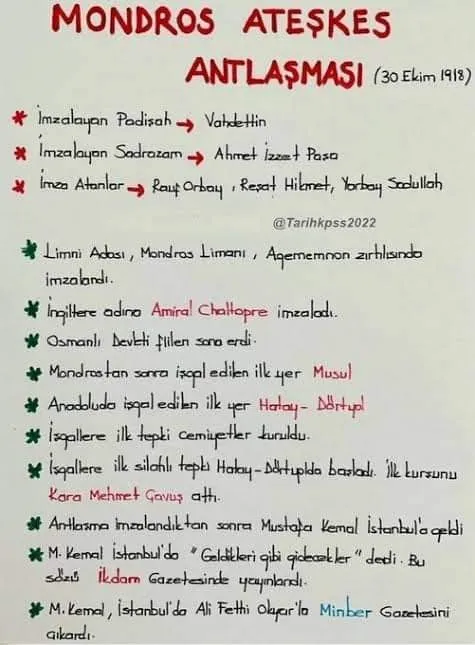 MONDROS ATEŞKES
ANTLAŞMASI (30 Ekim 1918)
* İmzalayan Padişah → Vahdettin
* İmzalayan Sadrazam → Ahmet İzzet Paşa
* İmza Atanlar → Rauf Orbay, Reşat Hikmet, Yarbay Sadullah
@Tarihkpss2022
* Limni Adası, Mondros Limanı, Agememnon zırhlısında
imzalandı.
* İngiltere adına Amiral Chaltopre imzaladı.
* Osmanlı Devleti fiilen sona erdi.
* Mondrostan sonra işgal edilen ilk yer Musul
* Anadoluda işgal edilen ilk yer Hatay-Dörtyol
* İşgallere ilk tepki cemiyetler kuruldu.
* İşgallere ilk silahlı tepki Hatay-Dörtyolda başladı. İlk kurşunu
Kara Mehmet Çavuş attı.
* Antlaşma imzalandıktan sonra Mustafa Kemal İstanbul'a geldi
* M. Kemal İstanbul'da "Geldikleri gibi giderler" dedi. Bu
sözü İkdam Gazetesinde yayınlandı.
* M. Kemal, İstanbul'da Ali Fethi Okyar'la Minber Gazetesini
çıkardı.